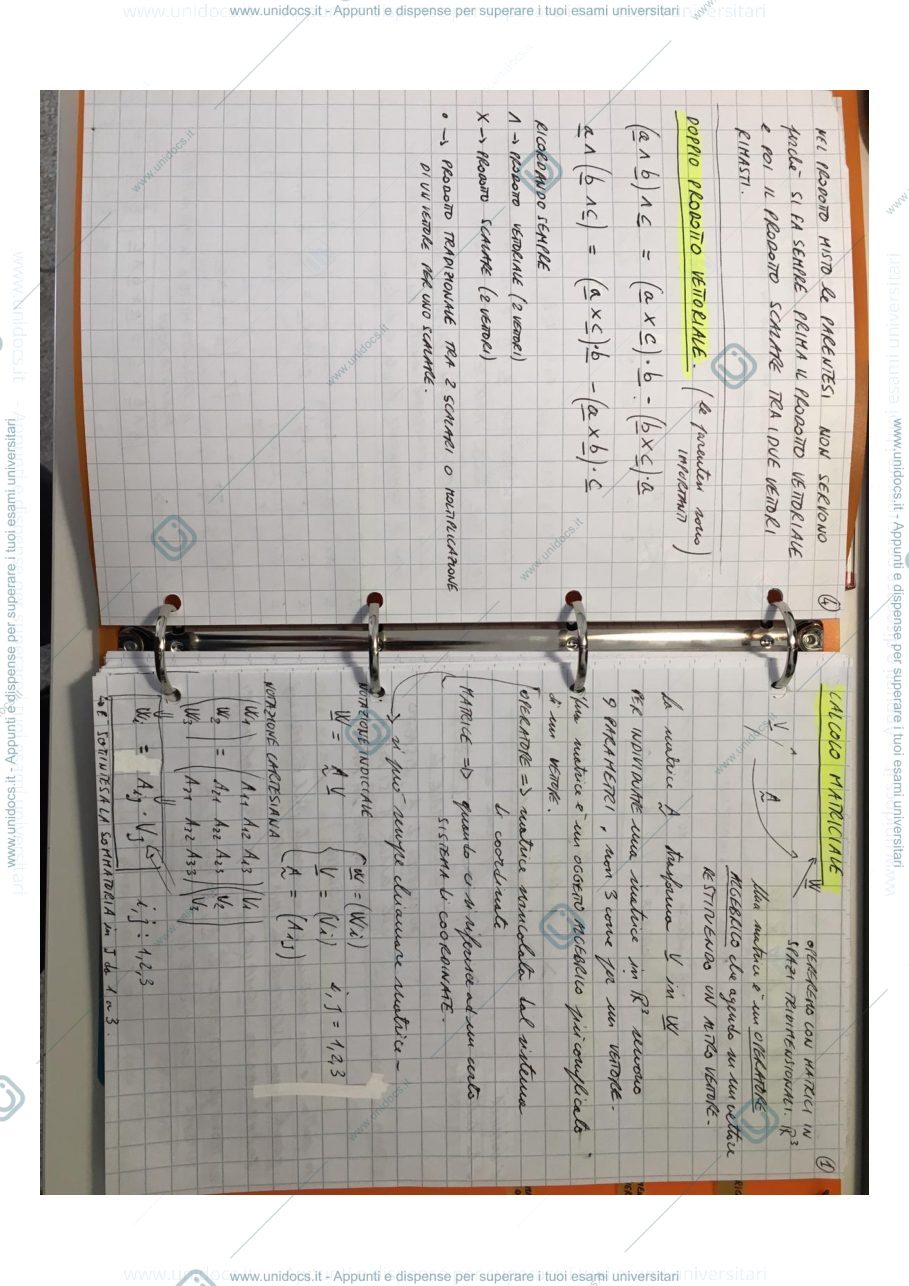 www.unidocs.it - Appunti e dispense per superare i tuoi esami universitari
NEL PRODOTTO MISTO le PARENTESI NON SERVONO
perchè SI FA SEMPRE PRIMA IL PRODOTTO VETTORIALE
e POI IL PRODOTTO SCALARE TRA I DUE VETTORI
RIMASTI.
DOPPIO PRODOTTO VETTORIALE. (le parentesi sono)
IMPORTANTI
(a ∧ b) ∧ c = (a x c) · b - (b x c) · a
a ∧ (b ∧ c) = (a x c) · b - (a x b) · c
RICORDANDO SEMPRE
∧ → PRODOTTO VETTORIALE (2 VETTORI)
X → PRODOTTO SCALARE (2 VETTORI)
• → PRODOTTO TRADIZIONALE TRA 2 SCALARI O MOLTIPLICAZIONE
DI UN VETTORE PER UNO SCALARE.
4
CALCOLO MATRICIALE
1
OPEREREMO CON MATRICI IN
SPAZI TRIDIMENSIONALI. R³
V
A
W
Una matrice è un OPERATORE
ALGEBRICO che agendo su un vettore
RESTITUENDO UN ALTRO VETTORE-
La matrice A trasforma V in W
PER INDIVIDUARE una matrice in R³ servono
9 PARAMETRI, non 3 come per un VETTORE-
Una matrice è un OGGETTO ALGEBRICO più complicato
di un VETTORE.
OPERATORE => matrice svincolata dal sistema
di coordinate
MATRICE => quando ci si riferisce ad un certo
SISTEMA di COORDINATE.
→ si può sempre chiamare matrice-
NOTAZIONE INDICIALE
W = A V
W = (Wi)
V = (Vi) i, j = 1,2,3
A = (Aij)
NOTAZIONE CARTESIANA
(W1) (A11 A12 A13) (V1)
(W2) = (A21 A22 A23) (V2)
(W3) (A31 A32 A33) (V3)
Wi = Aij · Vj i, j : 1,2,3
↳ È SOTTINTESA LA SOMMATORIA in J da 1 a 3.
www.unidocs.it - Appunti e dispense per superare i tuoi esami universitari